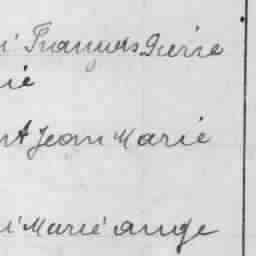 i François Pierre
ie
nt Jean Marie
i Marie ange